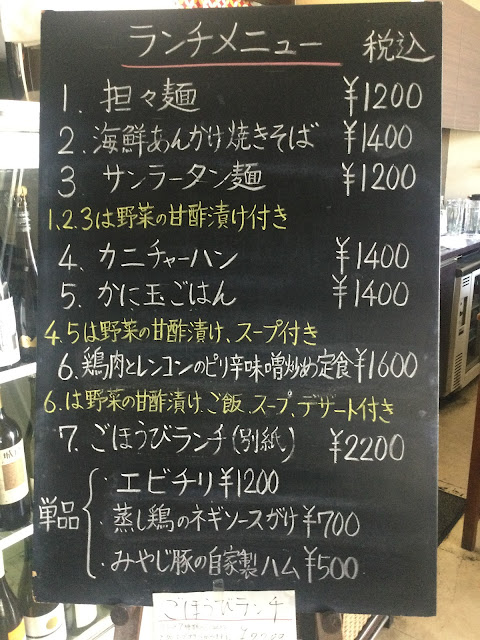 ランチメニュー 税込
1. 担々麺 ¥1200
2. 海鮮あんかけ焼きそば ¥1400
3 サンラータン麺 ¥1200
1.2.3は野菜の甘酢漬け付き
4. カニチャーハン ¥1400
5. かに玉ごはん ¥1400
4.5は野菜の甘酢漬け、スープ付き
6. 鶏肉とレンコンのピリ辛味噌炒め定食 ¥1600
6.は野菜の甘酢漬け、ご飯、スープ、デザート付き
7. ごほうびランチ(別紙) ¥2200
単品
・エビチリ ¥1200
・蒸し鶏のネギソースがけ ¥700
・みやじ豚の自家製ハム ¥500
ごほうびランチ